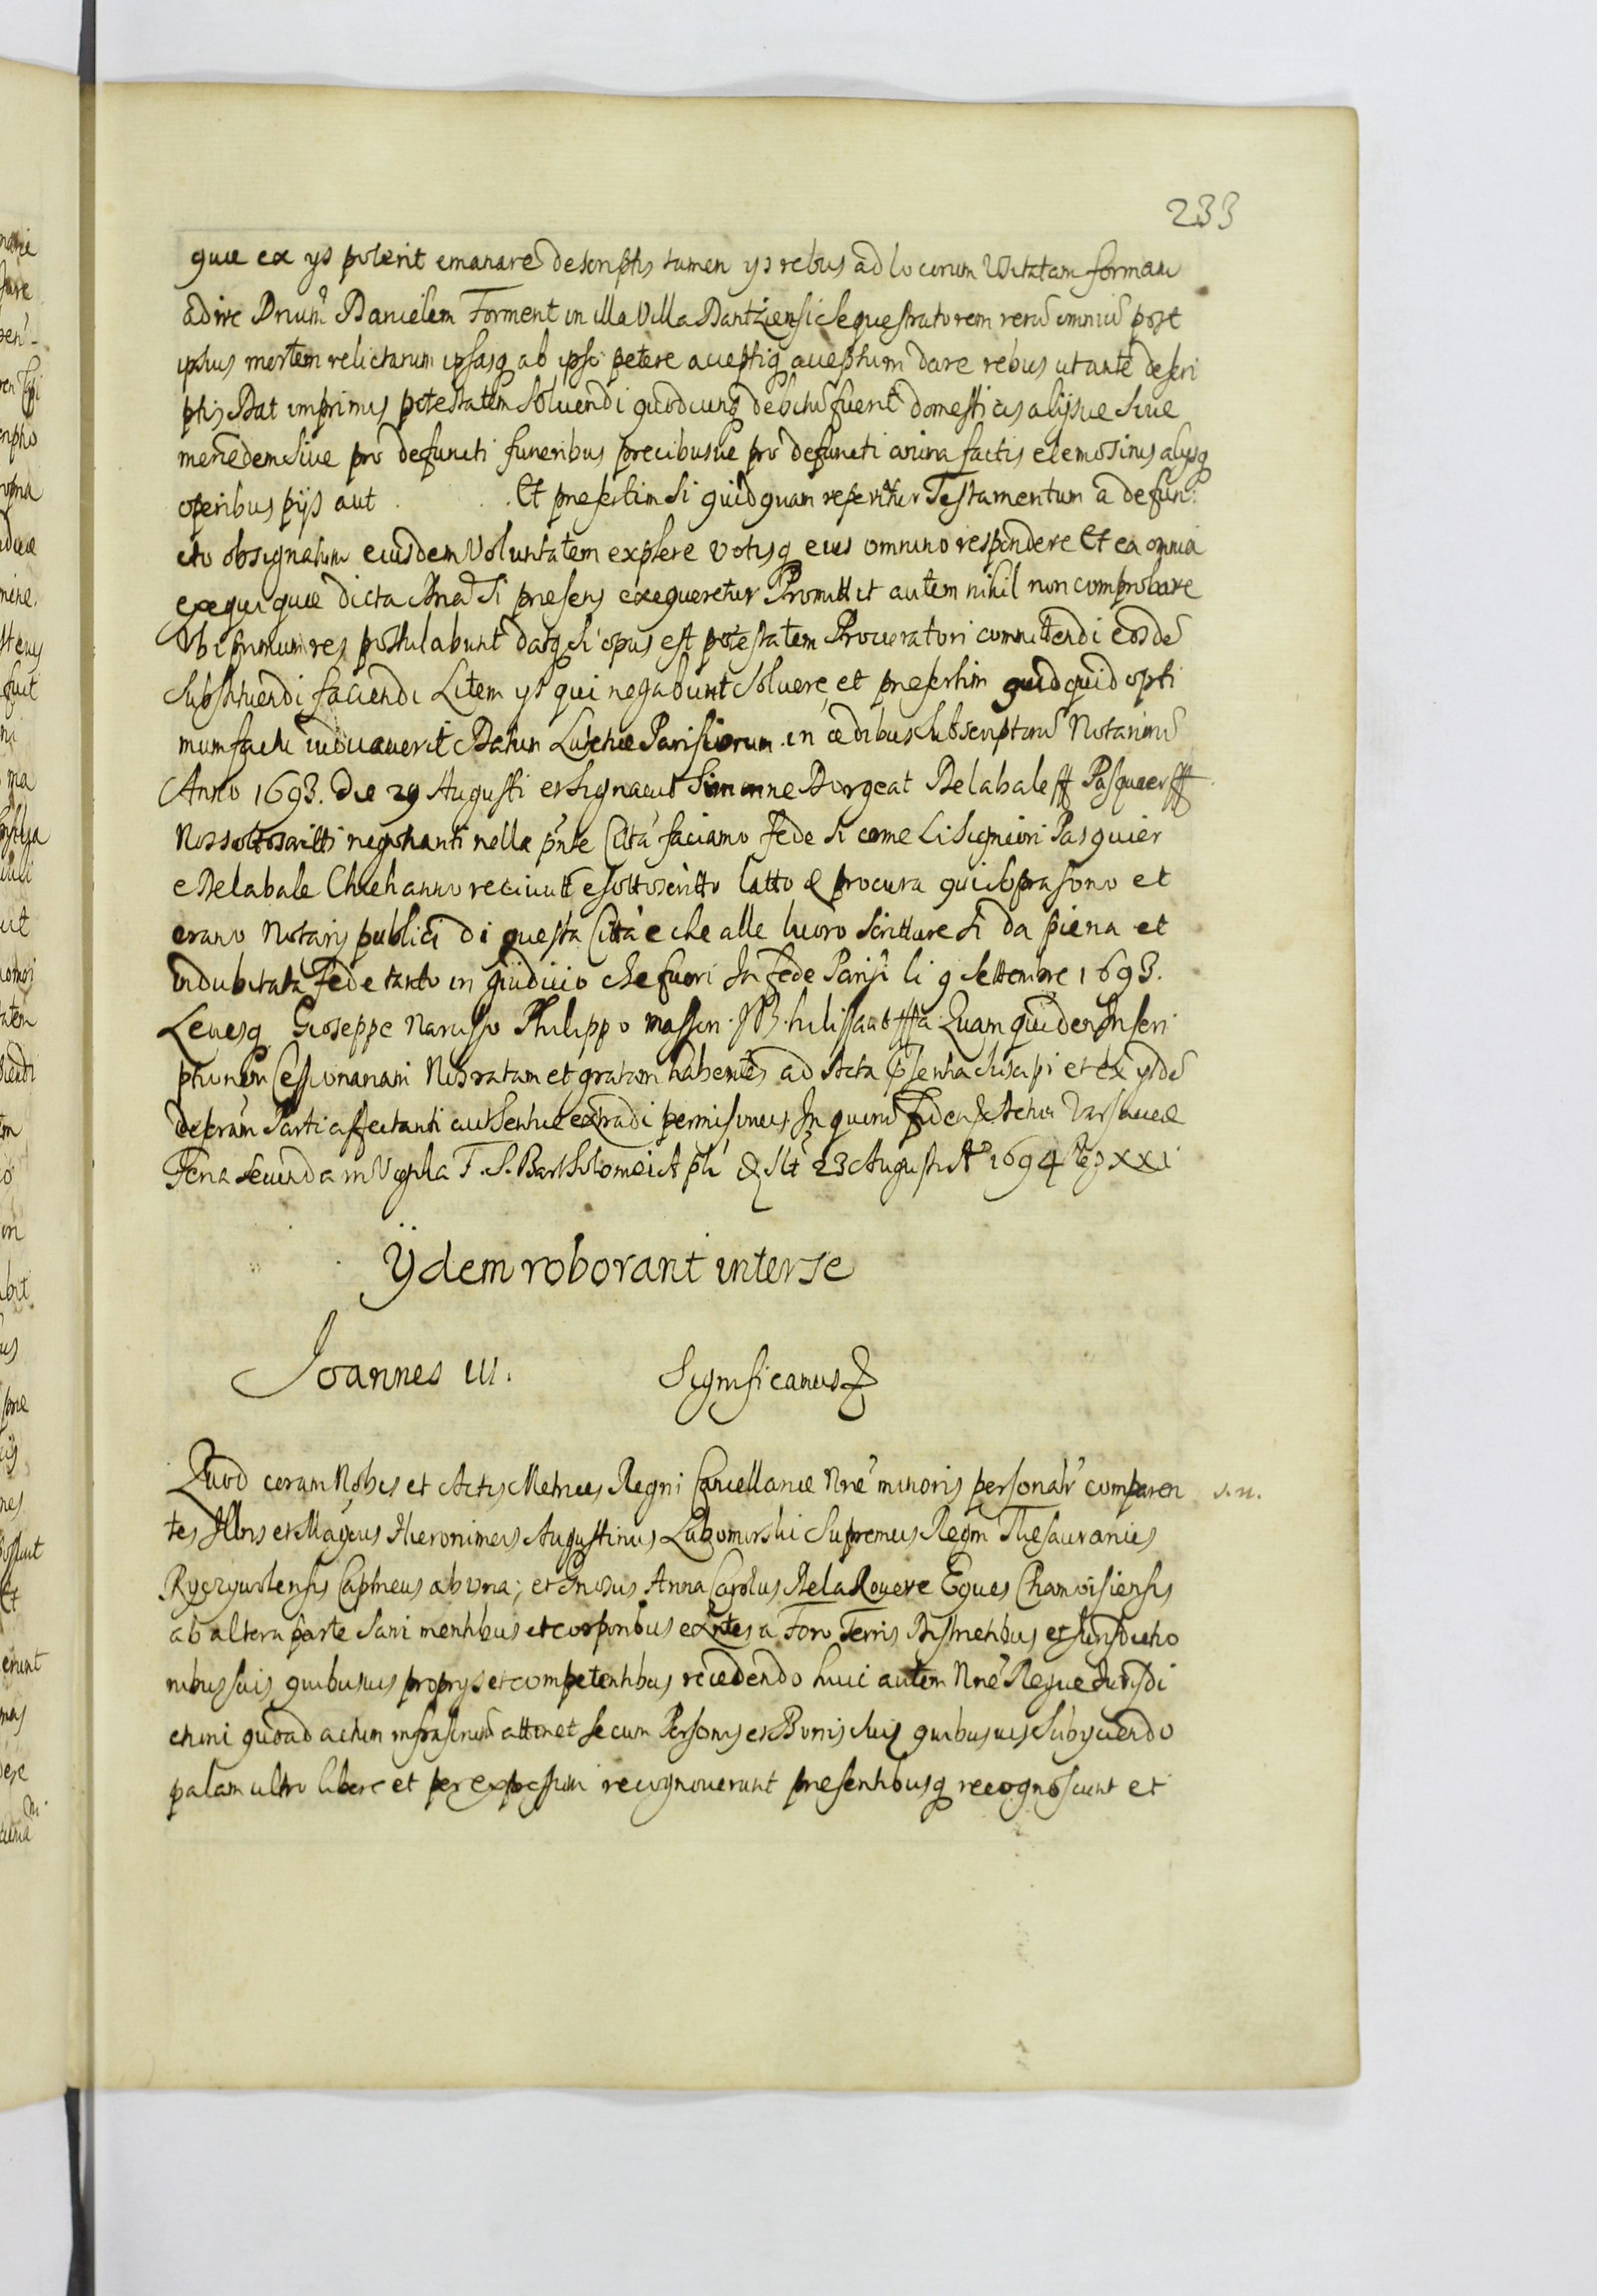 233
quae ex ys poterit emanare descriptis tamen ys rebus ad locorum usitatam formam
adire Dnum Danielem Forment in illa Villa Dantziensi Sequestratorem rerū omniū post
ipsius mortem relictarum ipsasq ab ipso petere acceptiq acceptum dare rebus ut ante descri
ptis Dat imprimis potestatem Soluendi quodcunq debitū fuerit domesticis alijsue Siue
mercedem Siue pro defuncti funeribus precibusue pro defuncti anima factis elemosinis alijsq
operibus pijs aut . . . Et presertim Si quidquam reperitur Testamentum a defun:
cto obsignatum eiusdem Voluntatem explere votisq eius omnino respondere Et ea omnia
exequi quae dicta Ana Si presens exequeretur Promittit autem nihil non comprobare
Ubi primum res postulabunt datq Si opus est potestatem Procuratori committendi eosdē
Substituendi faciendi Litem ys qui negabunt Soluere, et presertim quidquid opti
mum factu iudicauerit Datum Lutetiae Parisiorum in aedibus Subscriptorū Notariorū
Anno 1693. die 29 Augusti et Signauit Simonne Borgeat Delabale ff Pasquier ff
Noi sottoscritti negotianti nella pnte Città faciamo fede Si come Li Signiori Pasquier
e Delabale Che hanno receuuto e Sottoscritto l'atto & procura qui Sopra sono et
erano Notarij publici di questa Città e che alle luoro Scritture Si da piena et
indubitata Fede tanto in giudicio che fuori In fede Parisi li 9 Settembre 1693.
Leuesq Gioseppe Narusso Philippo massin. JB. helissant ffa. Quam quidem Inscri
ptionem Cessionariam Nos ratam et gratam habentes ad Acta pnsentia Suscipi et ex ysdē
descram Parti affectanti authentice extradi permisimus In quorū fidem & Actum Varsauiae
Feria Secunda in Vigilia F. S. Bartholomei Apli & Ilt 23 Augusti A° 1694 Reg XXI
Ÿdem roborant inter se
Joannes III. Significamus &
Quod coram Nobis et Actis Metrices Regni Cancellariae Nrē minoris personalr comparen
s. n.
tes Illris et Magcus Hieronimus Augustinus Lubomirski Supremus Regni Thesaurarius
Ryczywolensis Capitneus ab una; et Gnosus Anna Carolus De la Rouere Eques Chamoisiensis
ab altera parte Sani mentibus et corporibus exntes a Foro Terris Districtibus et Jurisdictio
nibus suis quibusuis proprys et competentibus recedendo huic autem Nrē Regiae Jurisdi
ctioni quoad actum infrascriptū attinet se cum Personis et Bonis Suis quibusuis Subyciendo
palam ultro libere et per expressum recognouerunt presentibusq recognoscunt et